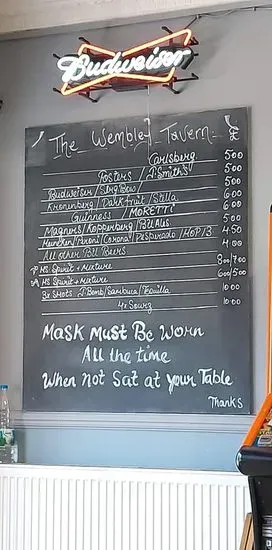 Budweiser
The Wembley Tavern £
Carlsberg 500
Fosters / J.Smiths 500
Budweiser / Strg.Bow / 500
Kronenberg / Dark fruit / Stella 600
Guinness / MORETTI 600
Magners / Kopperberg / Btl Ales 500
Munchen / Peroni / Corona / Desperado / HOP/3 450
All other Btl Beers 400
HS. Spirit + Mixture 800/700
HS. Spirit + Mixture 600/500
3x Shots J.Bomb/Sambuca/Tequila 1000
4x Sourz 1000
Mask Must Be Worn
All the time
When not Sat at your Table
Thanks